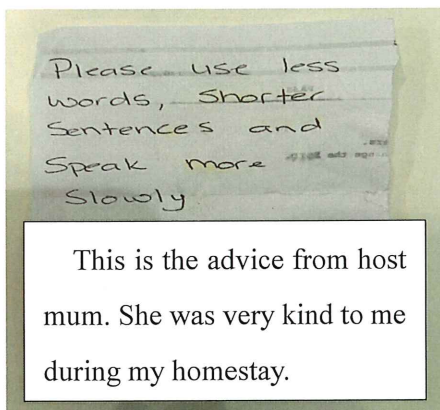 Please use less
words, Shorter
Sentences and
Speak more
Slowly
This is the advice from host
mum. She was very kind to me
during my homestay.